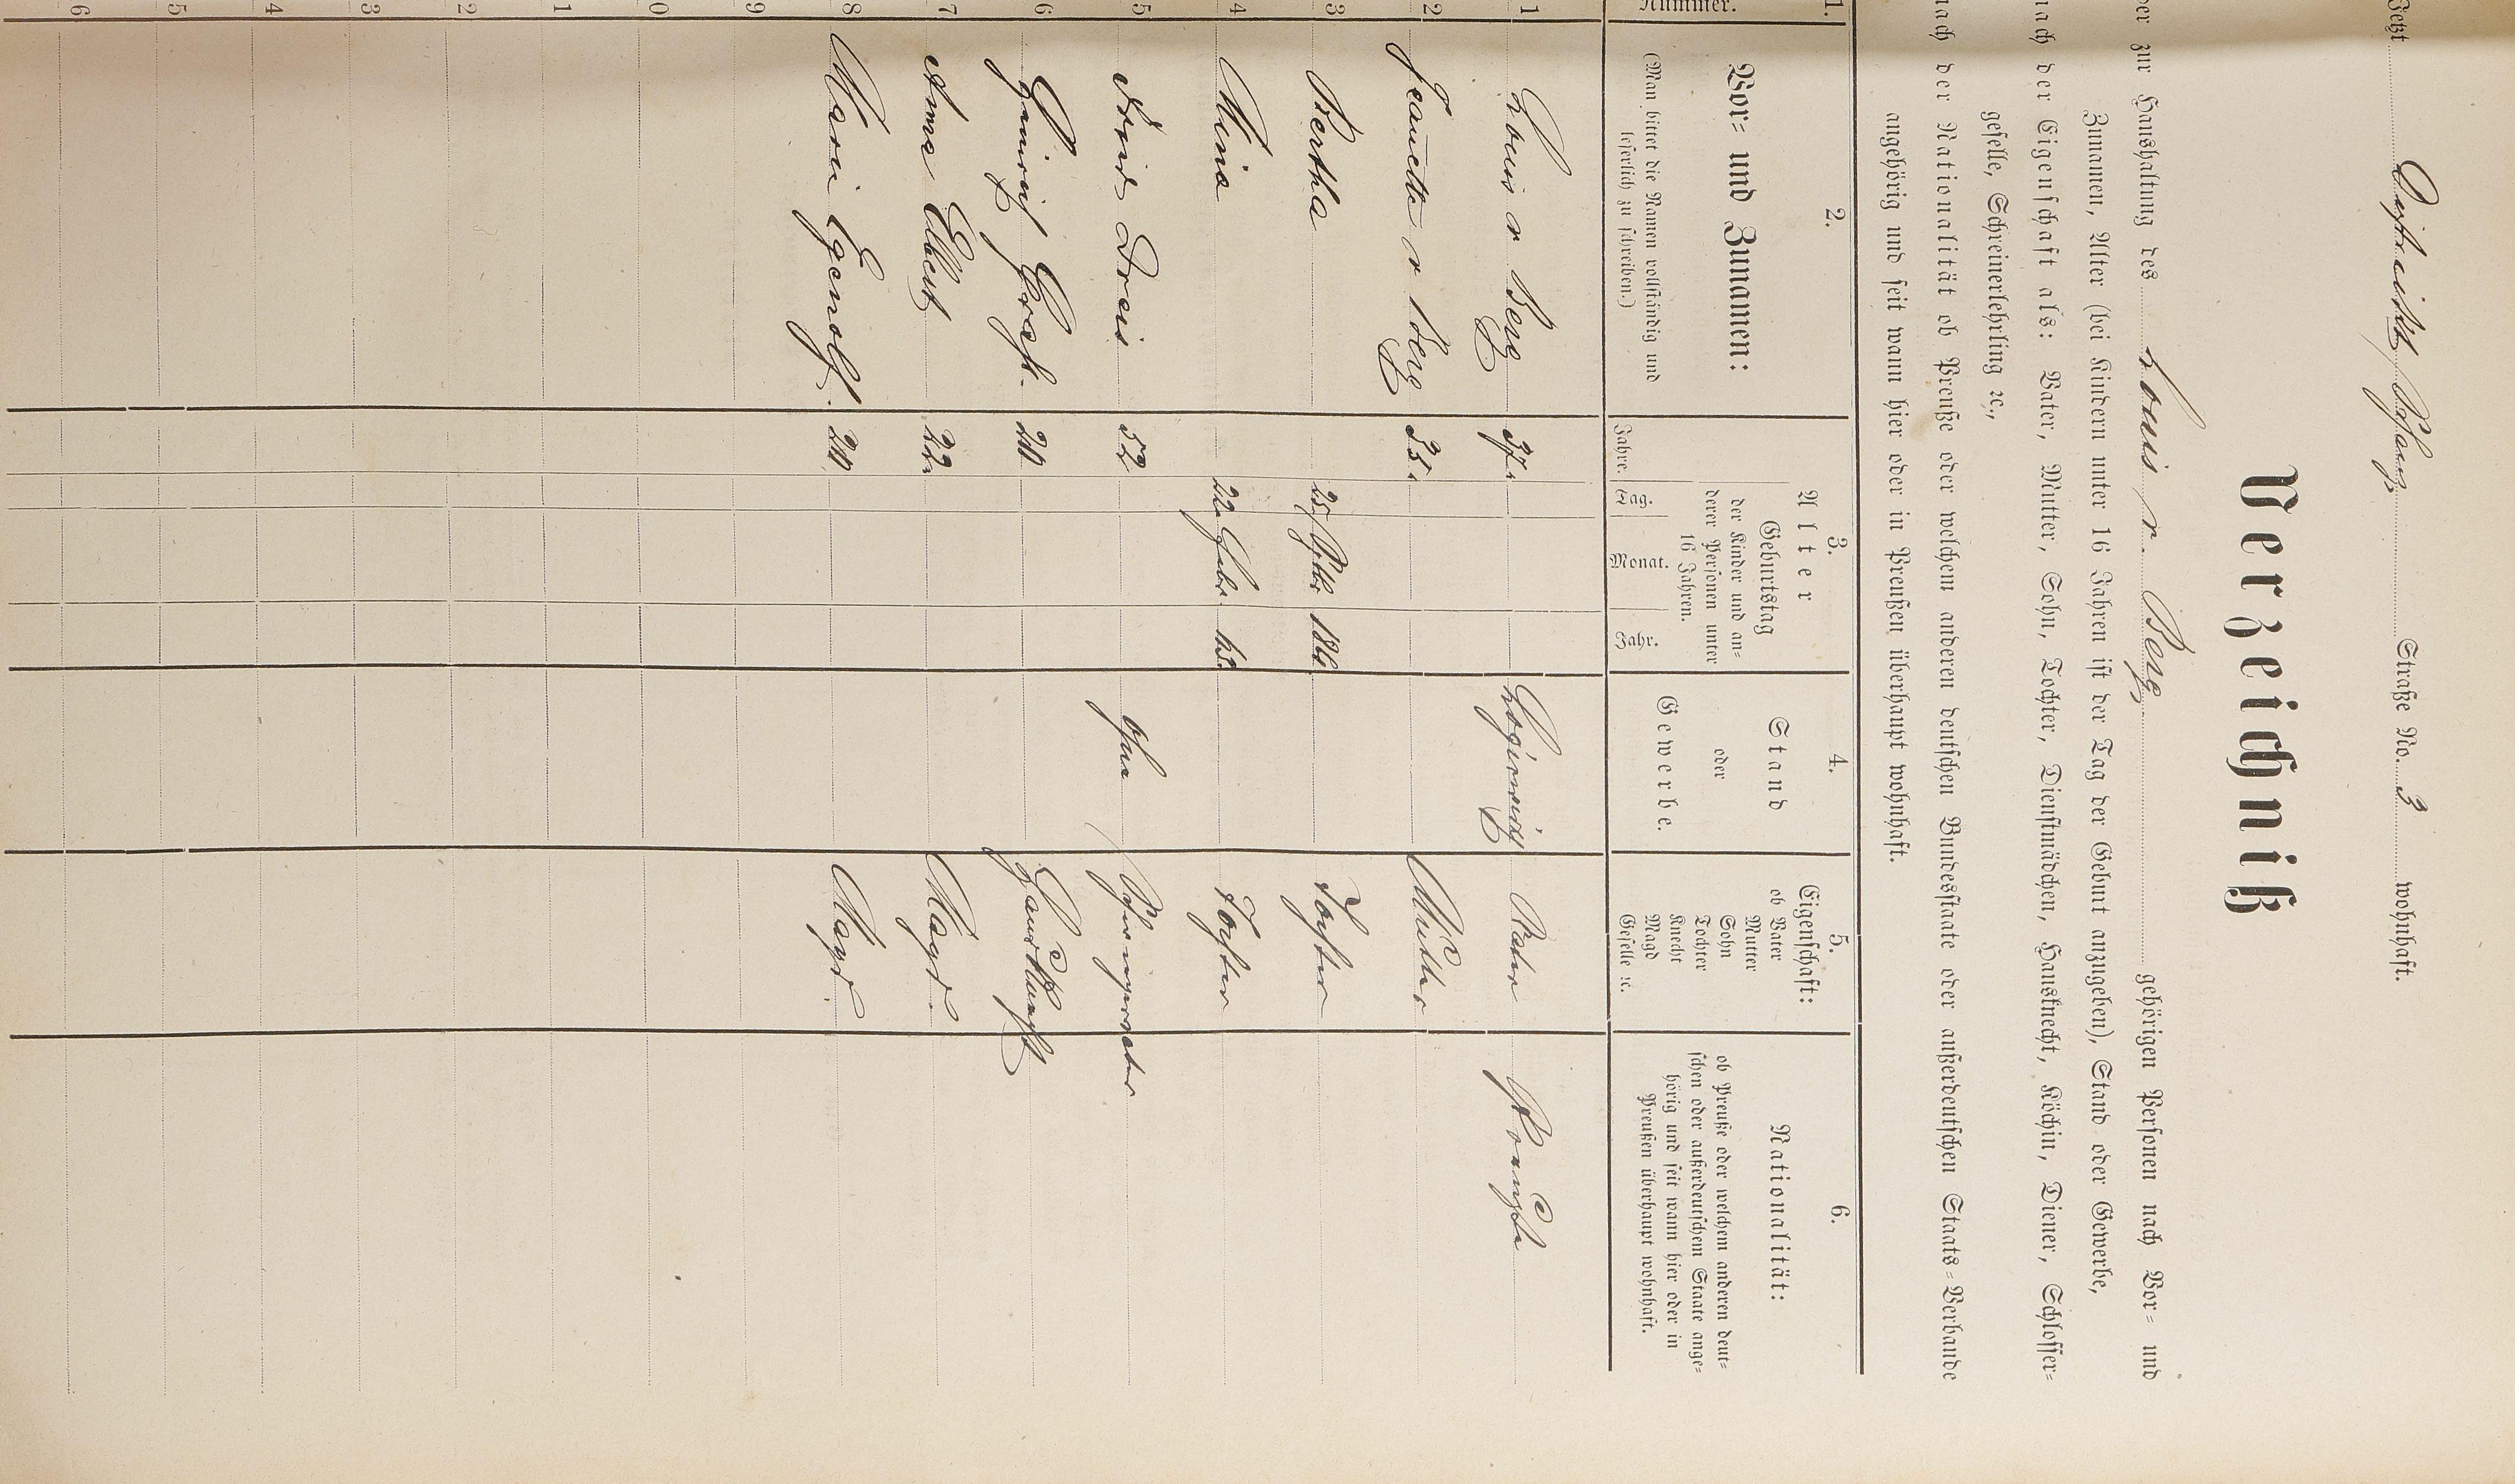 Jetzt Straße No. 3 wohnhaft.
Verzeichniß
der zur Haushaltung des Louis v. Berg gehörigen Personen nach Vor- und
Zunamen, Alter (bei Kindern unter 16 Jahren ist der Tag der Geburt anzugeben), Stand oder Gewerbe,
nach der Eigenschaft als: Vater, Mutter, Sohn, Tochter, Dienstmädchen, Hausknecht, Köchin, Diener, Schlosser-
geselle, Schreinerlehrling ꝛc.,
nach der Nationalität ob Preuße oder welchem anderen deutschen Bundesstaate oder außerdeutschen Staats-Verbande
angehörig und seit wann hier oder in Preußen überhaupt wohnhaft.
1. 2. 3. 4. 5. 6.
Nummer.
Vor- und Zunamen:
(Man bittet die Namen vollständig und
leserlich zu schreiben.)
Alter
Jahre.
Geburtstag
der Kinder und an-
derer Personen unter
16 Jahren.
Tag. Monat. Jahr.
Stand
oder
Gewerbe.
Eigenschaft:
ob Vater
Mutter
Sohn
Tochter
Knecht
Magd
Geselle ꝛc.
Nationalität:
ob Preuße oder welchem anderen deut-
schen oder außerdeutschem Staate ange-
hörig und seit wann hier oder in
Preußen überhaupt wohnhaft.
1 Louis v Berg 37 Vater Preuße
2 v Berg 35 Mutter
3 Bertha 25 186 Tochter
4 Mina 22 Febr. 65 Tochter
5 Dreis 52
6 Heinrich 20
7 Anna Elbert 22 Magd.
8 Marie Egenolf. 20 Magd
9
0
1
2
3
4
5
6